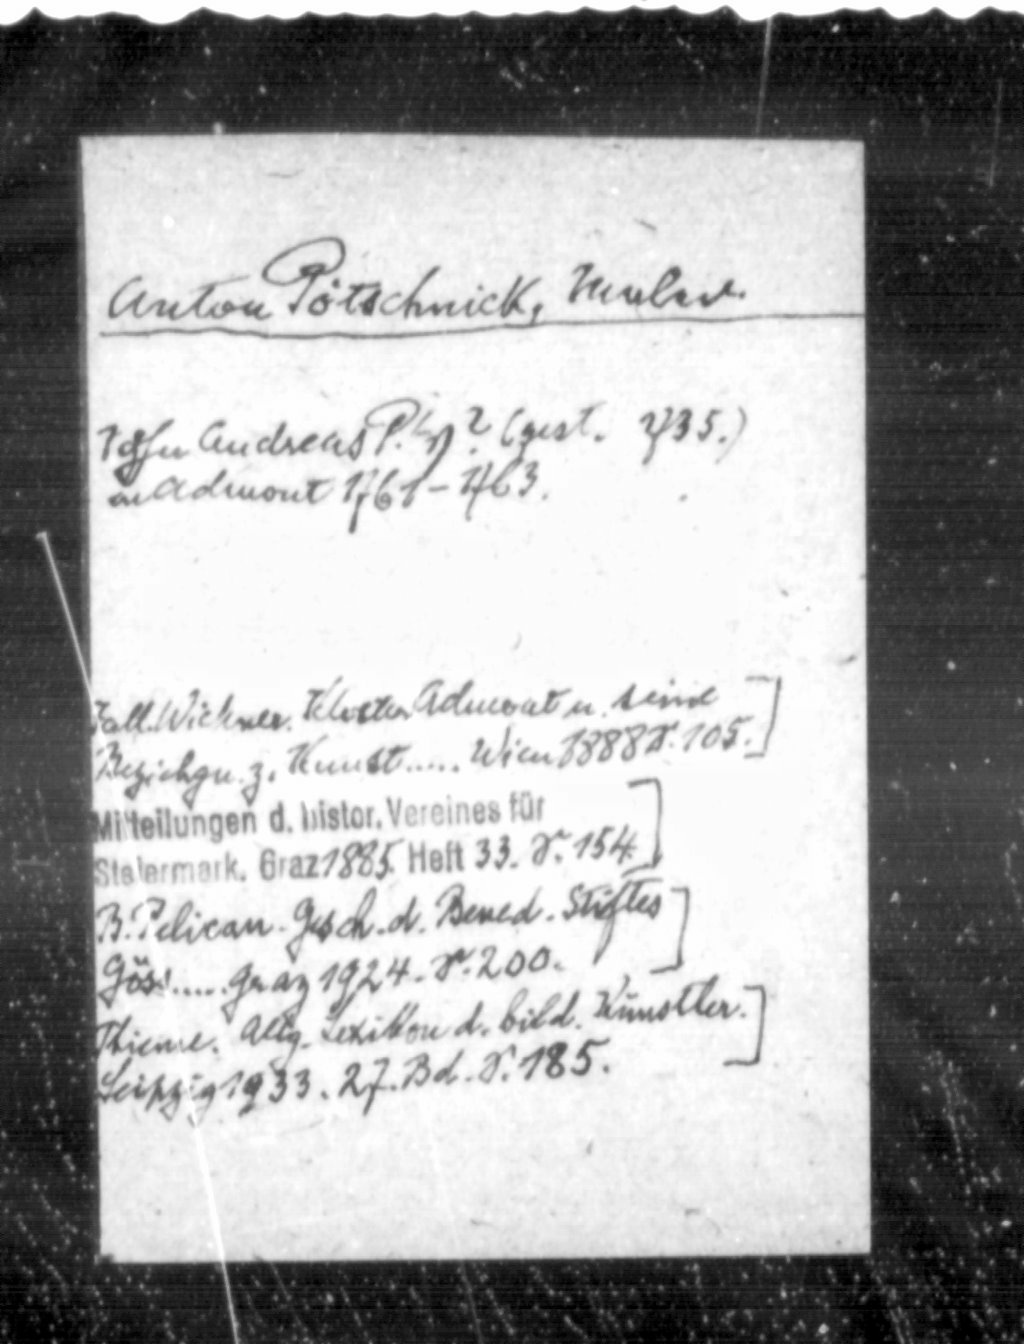 Anton Pötschnick, Maler.
Sohn Andreas P.'s? (gest. 1735.)
in Admont 1761–1763.
Wichner. Kloster Admont u. seine
Beziehgn. z. Kunst..... Wien 1888 S. 105.]
Mitteilungen d. histor. Vereines für
Steiermark. Graz 1885. Heft 33. S. 154.]
B. Pelican. Gesch. d. Bened. Stiftes
Göss..... Graz 1924. S. 200.]
Thieme. Allg. Lexikon d. bild. Künstler.
Leipzig 1933. 27. Bd. S. 185.]